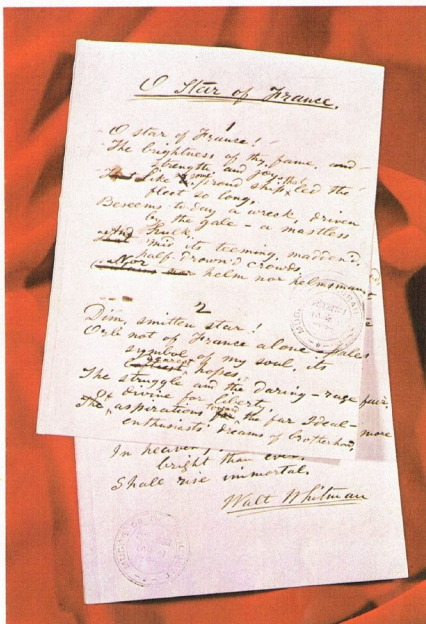 O Star of France.
1
O star of France!
The brightness of thy fame, and
strength and joy,
Like some proud ship that led the
fleet so long,
Beseems to-day a wreck, driven
by the gale - a mastless
hulk;
And 'mid its teeming, madden'd,
half-drown'd crowds,
Nor helm nor helmsman.
2
Dim, smitten star!
Orb not of France alone - pale
symbol of my soul, its
dearest hopes,
The struggle and the daring - rage
divine for liberty,
The aspirations toward the far Ideal -
enthusiasts' dreams of brotherhood,
In heaven,
bright than ever,
Shall rise immortal.
Walt Whitman